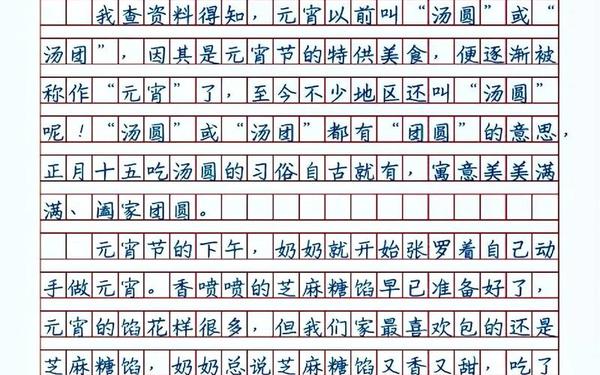 我查资料得知，元宵以前叫“汤圆”或“
汤团”，因其是元宵节的特供美食，便逐渐被
称作“元宵”了，至今不少地区还叫“汤圆”
呢！“汤圆”或“汤团”都有“团圆”的意思，
正月十五吃汤圆的习俗自古就有，寓意美美满
满、阖家团圆。
元宵节的下午，奶奶就开始张罗着自己动
手做元宵。香喷喷的芝麻糖馅早已准备好了，
元宵的馅花样很多，但我们家最喜欢包的还是
芝麻糖馅，奶奶总说芝麻糖馅又香又甜，吃了